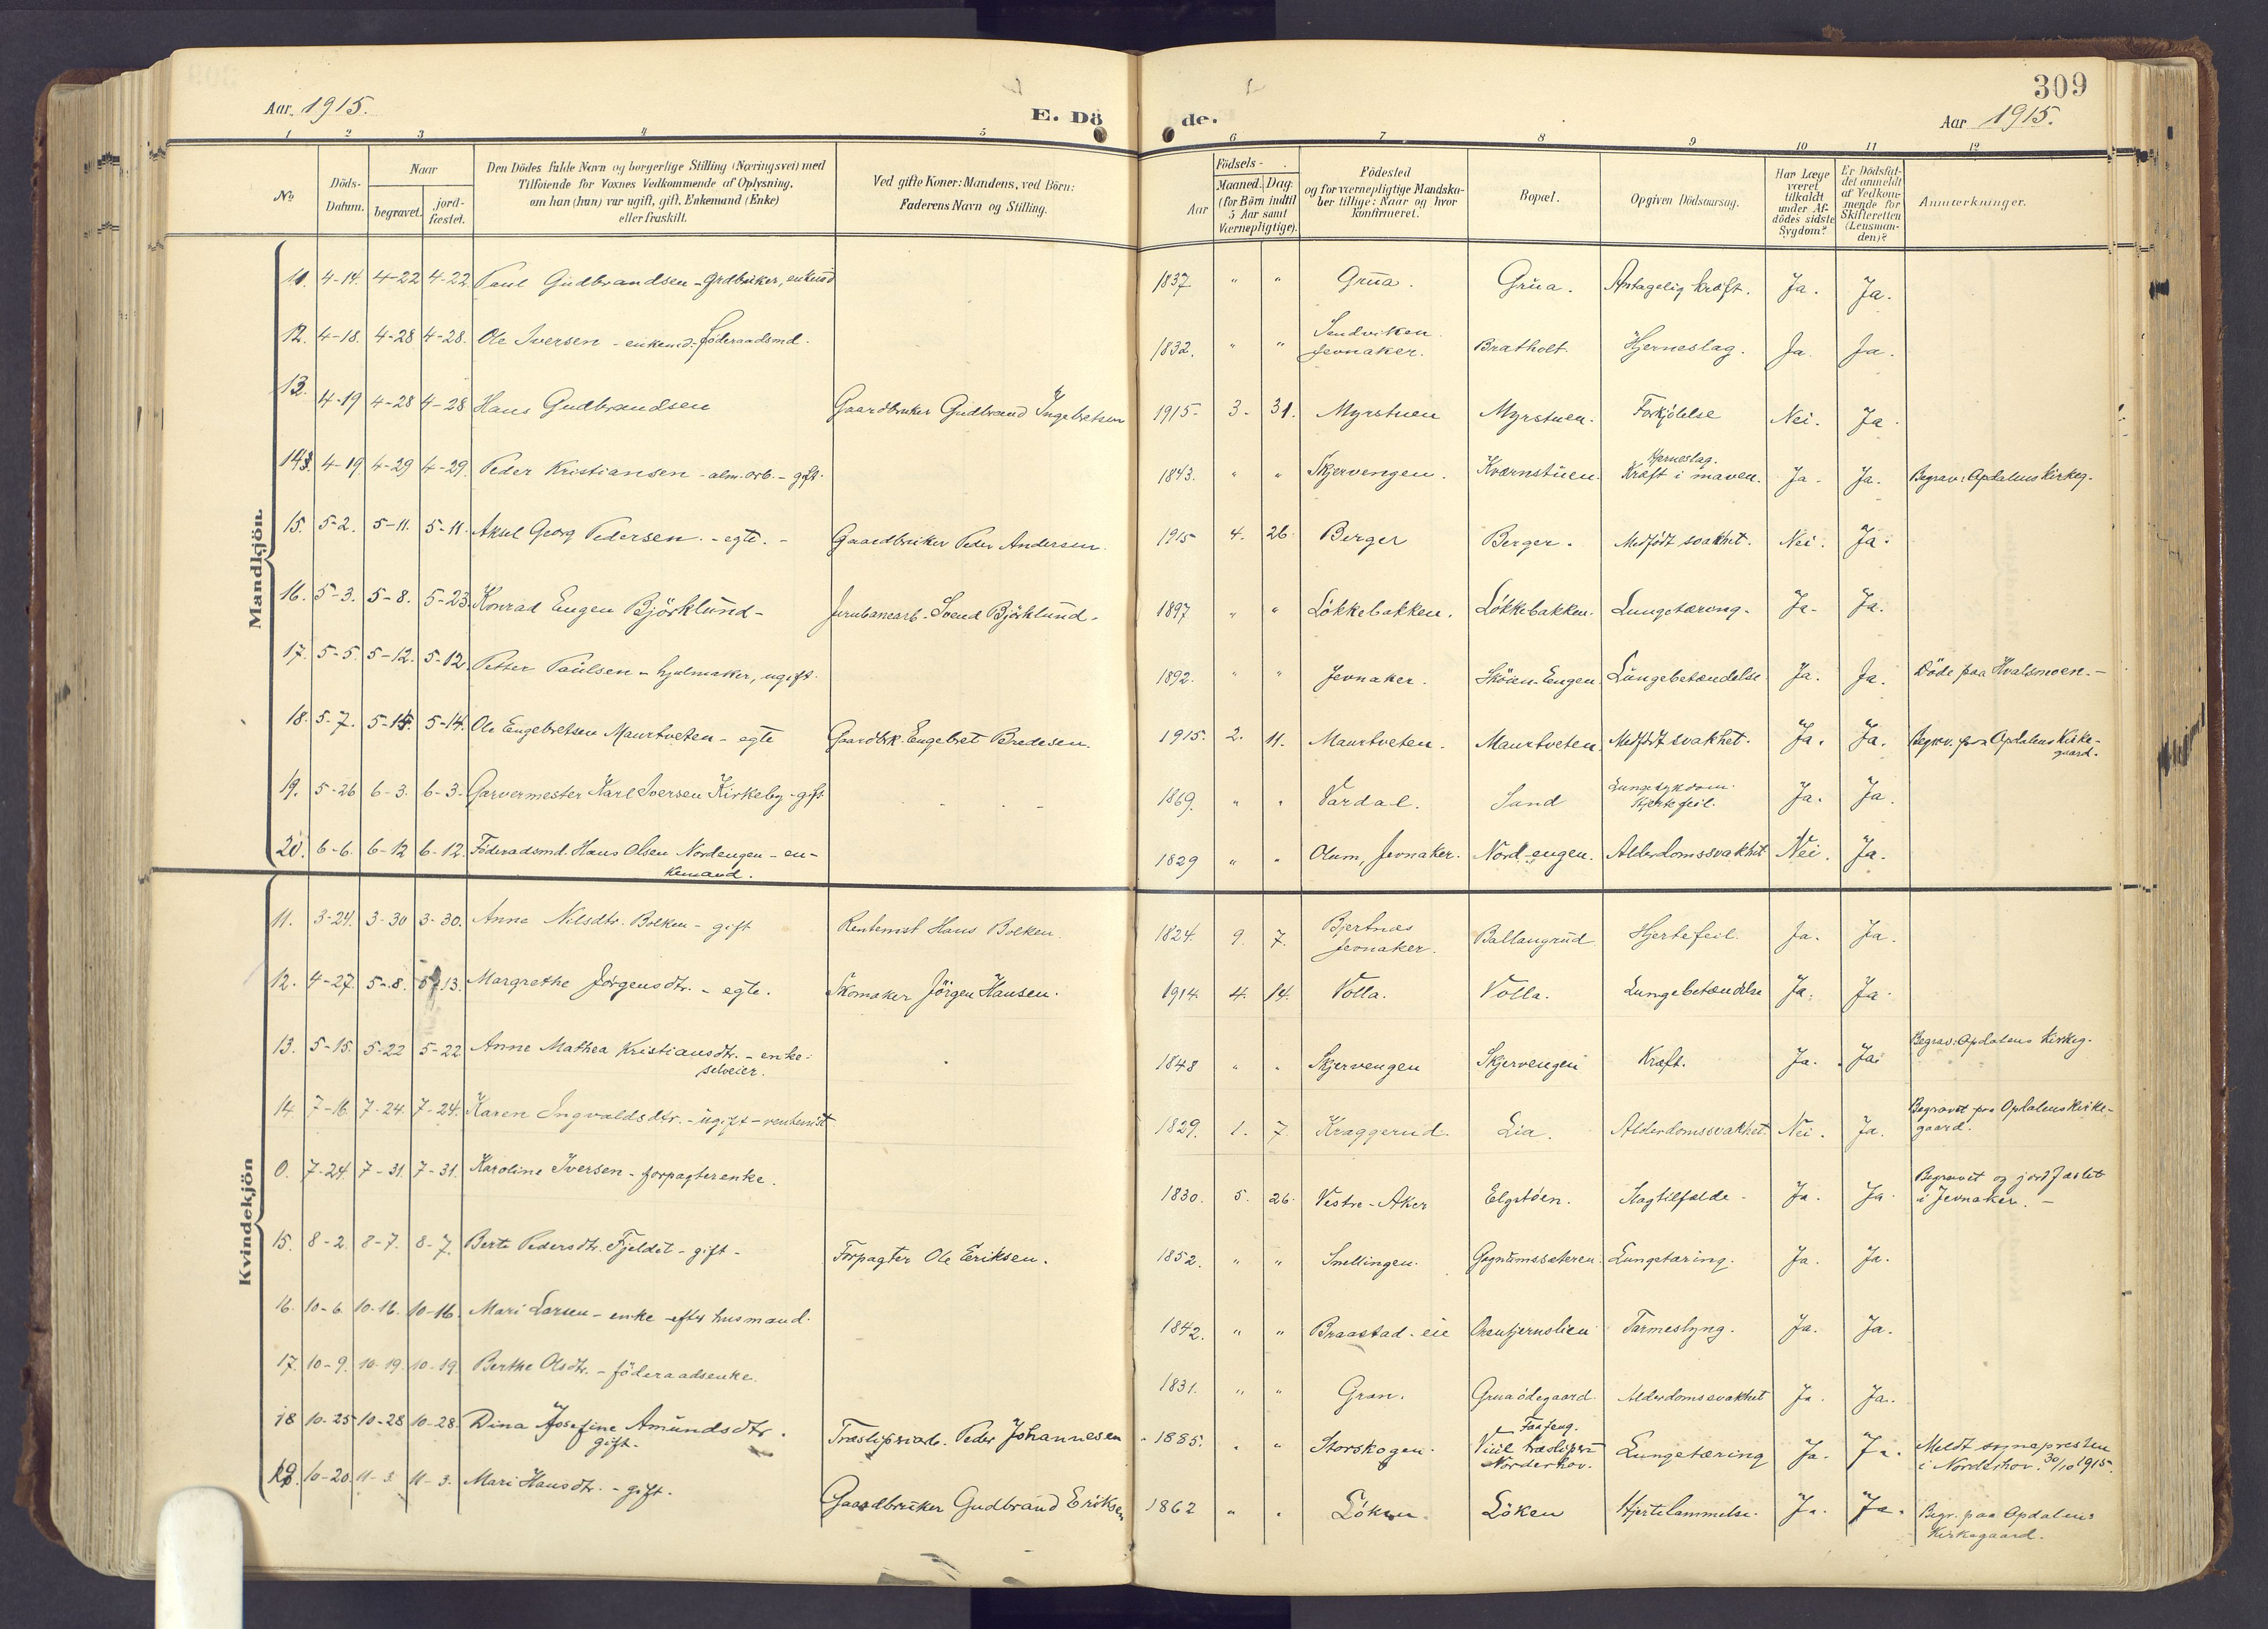 309
Aar 1915.
E. Dö de.
Aar 1915.
1 2 3 4 5 6 7 8 9 10 11 12
No
Döds-Datum.
Naar
begravet.
jord-fæstet.
Den Dödes fulde Navn og borgerlige Stilling (Næringsvei) med
Tilföiende for Voxnes Vedkommende af Oplysning,
om han (hun) var ugift, gift, Enkemand (Enke)
eller fraskilt.
Ved gifte Koner: Mandens, ved Börn:
Faderens Navn og Stilling.
Födsels-
Aar
Maaned. Dag.
(for Börn indtil
5 Aar samt
Værnepligtige).
Födested
og for værnepligtige Mandska-
ber tillige: Naar og hvor
Konfirmeret.
Bopæl.
Opgiven Dödsaarsag.
Har Læge
været
tilkaldt
under Af-
dödes sidste
Sygdom?
Er Dödsfal-
det anmeldt
af Vedkom-
mende for
Skifteretten
(Lensman-
den)?
Anmærkninger.
Mandkjön.
11. 4-14. 4-22 4-22 Paul Gudbrandsen - grdbruker, enkemd 1837 " " Grua. Grua. Antagelig kræft. Ja. Ja.
12. 4-18. 4-28 4-28. Ole Iversen - enkemd. föderaadsmd. 1832. " " Sandviken Jevnaker. Bratholt. Hjerneslag. Ja. Ja.
13. 4-19 4-28 4-28 Hans Gudbrandsen Gaardbruker Gudbrand Ingebretsen 1915- 3. 31. Myrstuen Myrstuen. Forkjölelse Nei. Ja.
14. 4-19. 4-29 4-29. Peder Kristiansen - alm. arb. - gift. 1843. " " Skjervengen. Kværnstuen. Hjerneslag. Kræft i maven. Ja. Ja. Begrav: Opdalens Kirkeg.
15. 5-2. 5-11. 5-11. Aksel Georg Pedersen. - egte. - Gaardbruker Peder Andersen. 1915 4. 26. Berger Berger. Medfödt svakhet. Nei. Ja.
16. 5-3. 5-8. 5-23. Konrad Eugen Björklund - Jernbanearb. Svend Björklund. 1897 " " Lökkebakken. Lökkebakken. Lungetæring. Ja. Ja.
17. 5-5. 5-12. 5-12. Petter Paulsen - hjulmaker, ugift. 1892. " " Jevnaker. Sköien-Eugen. Lungebetændelse Ja. Ja. Döde paa Hvalsmoen. -
18. 5-7. 5-14. 5-14. Ole Engebretsen Maurtveten - egte Gaardbrk. Engebret Bredesen. 1915. 2. 11. Maurtveten. Maurtveten. Medfödt svakhet. Ja. Ja. Begrv. paa Opdalens Kirke-
gaard.
19. 5-26 6-3. 6-3. Garvermester Karl Iversen Kirkeby - gift 1869. " " Vardal. Sand Lungesykdom. Hjertefeil. Ja. Ja.
20. 6-6. 6-12 6-12. Föderaadsmd. Hans Olsen Nordengen - en-
kemand. 1829 " " Olum, Jevnaker. Nord-engen. Alderdomssvakhet Nei. Ja.
Kvindekjön
11. 3-24. 3-30 3-30. Anne Nilsdtr. Bolken - gift Rentenist Hans Bolken. 1824. 9. 7. Bjertnæs Jevnaker. Ballangrud Hjertefeil. Ja. Ja.
12. 4-27. 5-8. 5-13. Margrethe Jörgensdtr. - egte. Skomaker Jörgen Hansen. 1914. 4. 14. Volla. Volla. Lungebetændelse Ja. Ja.
13. 5-15. 5-22 5-22 Anne Mathea Kristiansdtr. - enke.
selveier. 1848 " " Skjervengen Skjervengen Kræft. Ja. Ja. Begrav: Opdalens Kirkeg.
14. 7-16. 7-24. 7-24. Karen Ingvaldsdtr. - ugift - rentenist 1829. 1. 7. Kraggerud. Lia. Alderdomssvakhet. Nei. Ja. Begravet paa Opdalens Kirke-
gaard.
0. 7-24. 7-31. 7-31. Karoline Iversen - forpagterenke. 1830. 5. 26. Vestre-Aker Elgstöen. Slagtilfælde. Ja. Ja. Begravet og jordfæstet
i Jevnaker. -
15. 8-2. 8-7. 8-7. Berte Pedersdtr. Fjeldet - gift - Forpagter Ole Eriksen. 1852. " " Snellingen. Gagnumssæteren. Lungetæring. Ja. Ja.
16. 10-6. 10-16. 10-16. Mari Larsen - enke efter husmand. 1842. " " Braastad-eie Tarmeslyng. Ja. Ja.
17. 10-9. 10-19. 10-19. Berthe Olsdtr. - föderaadsenke. 1831. " " Gran. Gruaödegaard Alderdomssvakhet Ja. Ja.
18 10-25 10-28 10-28. Dina Josefine Amundsdtr.
gift. Træsliperiarb. Peder Johannesen 1885. " " Storskogen. Viul træsliperi Norderhov. Lungetæring Ja. Ja. Meldt sognepresten
i Norderhov. 30/10 1915.
19. 10-20. 11-3. 11-3. Mari Hansdtr. - gift. Gaardbruker Gudbrand Eriksen 1862 " " Löken. Löken Hjertelammelse. Ja. Ja. Begr. paa Opdalens
Kirkegaard.